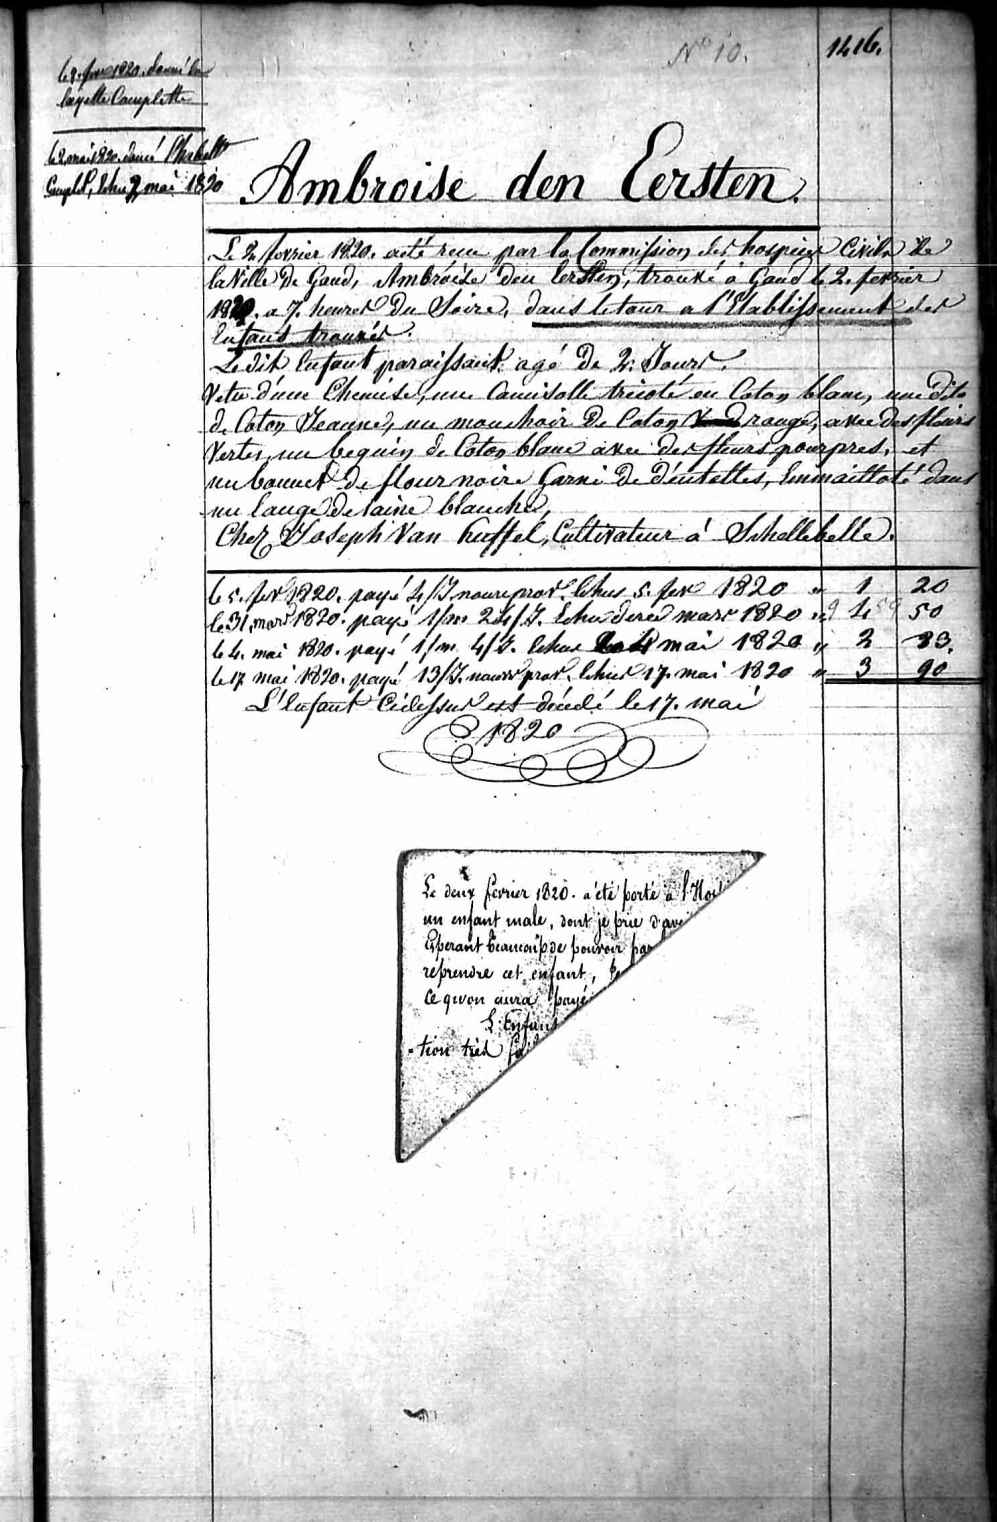 N° 10.
1416.
le 2. fevr 1820. donné la
layette Complette
le 2 mai 1820. donné
Complet, Echu 2 mai 1820
Ambroise den Eersten.
Le 2. fevrier 1820. a été recu par la Commission des hospices Civils de
la Ville de Gand, Ambroise den Eersten, trouvé a Gand le 2. fevrier
1820. a 7. heures du Soire, dans le tour a l'Etablissement des
Enfans trouvés.
Ledit Enfant paraissant agé de 2. Jours.
Vetu d'une Chemise, une Camisolle tricoté en Coton blanc, une dito
de Coton Jeaune, un mouchoir de Coton rouge, avec des fleurs
Vertes, un beguin de Coton blanc avec des fleurs pourpres, et
un bonnet de flour noire Garni de déntettes, Emmaittoté dans
un lange de laine blanche,
Chez Joseph Van huffel, Cultivateur á Schellebelle.
le 5. fevr 1820. payé 4/J. nour prov. Echus 5. fevr 1820 " 1 20
le 31. mars 1820. payé 1/m 24/J. Echu mars 1820 " 4 50
le 4. mai 1820. payé 1/m. 4/J. Echus 4 mai 1820 " 2 33.
le 17 mai 1820. payé 13/J. nour prov. Echus 17. mai 1820 " 3 90
L'Enfant Cidessus est décédé le 17. mai
1820
Le deux fevrier 1820. a été porté à l'Hos
un enfant male, dont je prie d'avoi
Esperant beaucoup de pouvoir par
reprendre cet enfant, Je
ce qu'on aura payé
L'Enfant
-tion très fai